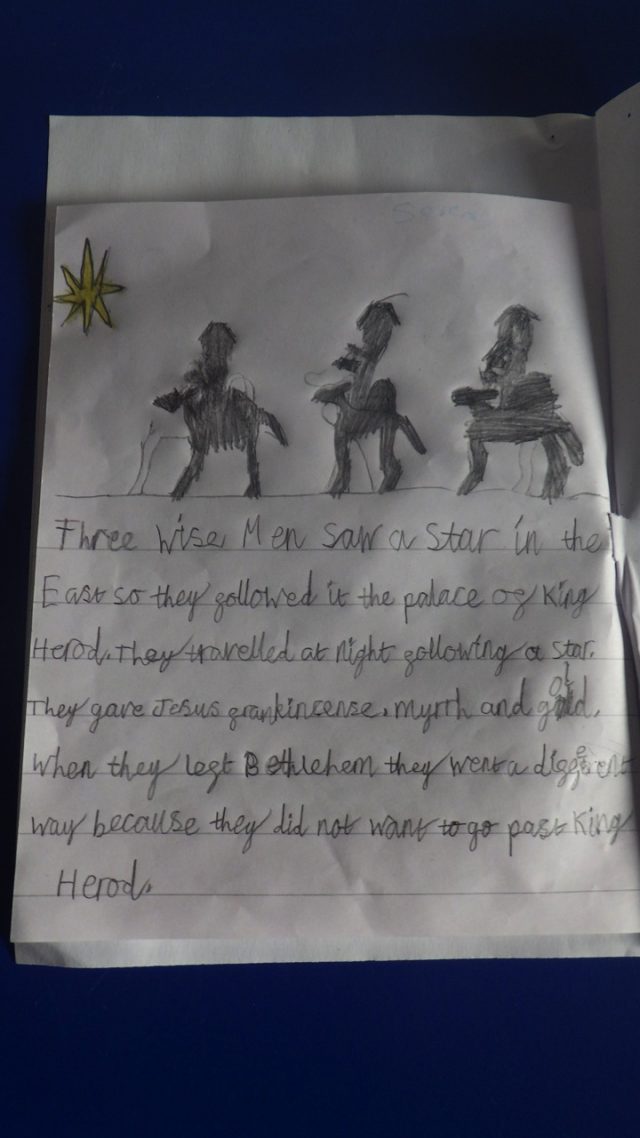 Three wise Men saw a star in the
East so they followed it the palace of King
Herod. They travelled at night following a star.
They gave Jesus frankincense, myrrh and gold.
when they left Bethlehem they went a different
way because they did not want to go past King
Herod.